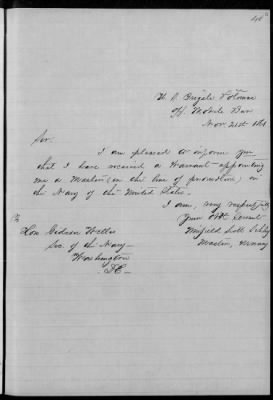 46
U. S. Frigate Potomac
Off Mobile Bar
Nov. 21st 1861
Sir.
I am pleased to inform you
that I have received a Warrant appointing
me a Master, (in the line of promotion,) in
the Navy of the United States.
I am, very respectfully
Your Obt. Servant
Winfield Scott Schley
Master,
To
Hon Gideon Welles
Sec. of the Navy
Washington
D.C.